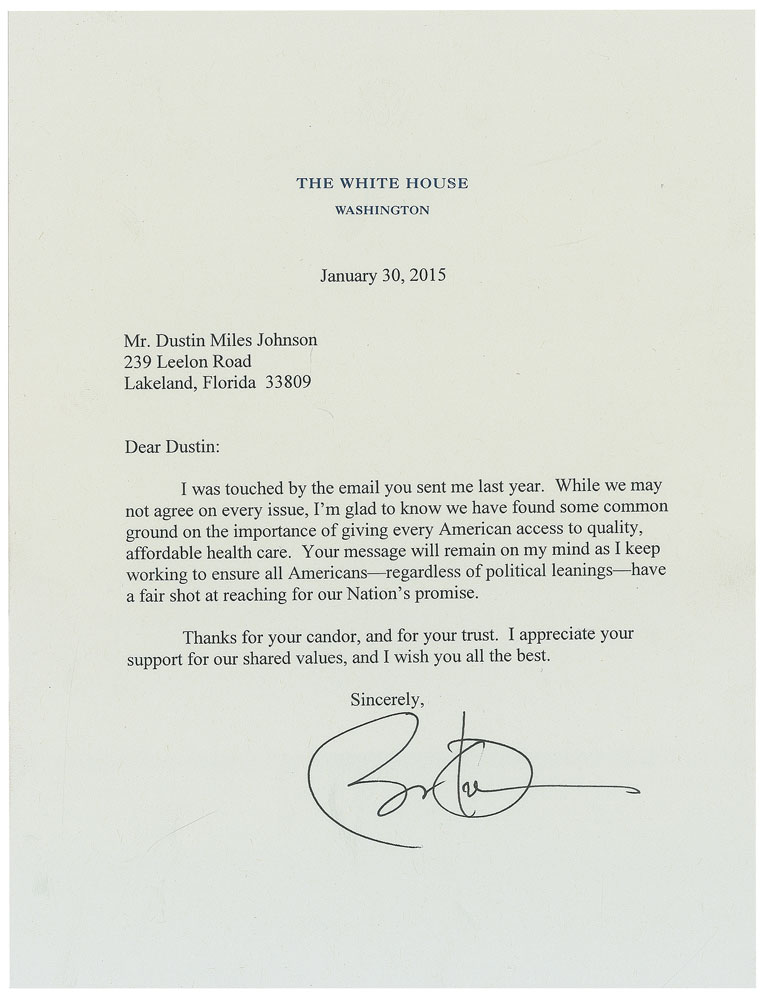 THE WHITE HOUSE
WASHINGTON
January 30, 2015
Mr. Dustin Miles Johnson
239 Leelon Road
Lakeland, Florida  33809
Dear Dustin:
I was touched by the email you sent me last year.  While we may
not agree on every issue, I’m glad to know we have found some common
ground on the importance of giving every American access to quality,
affordable health care.  Your message will remain on my mind as I keep
working to ensure all Americans—regardless of political leanings—have
a fair shot at reaching for our Nation’s promise.
Thanks for your candor, and for your trust.  I appreciate your
support for our shared values, and I wish you all the best.
Sincerely,